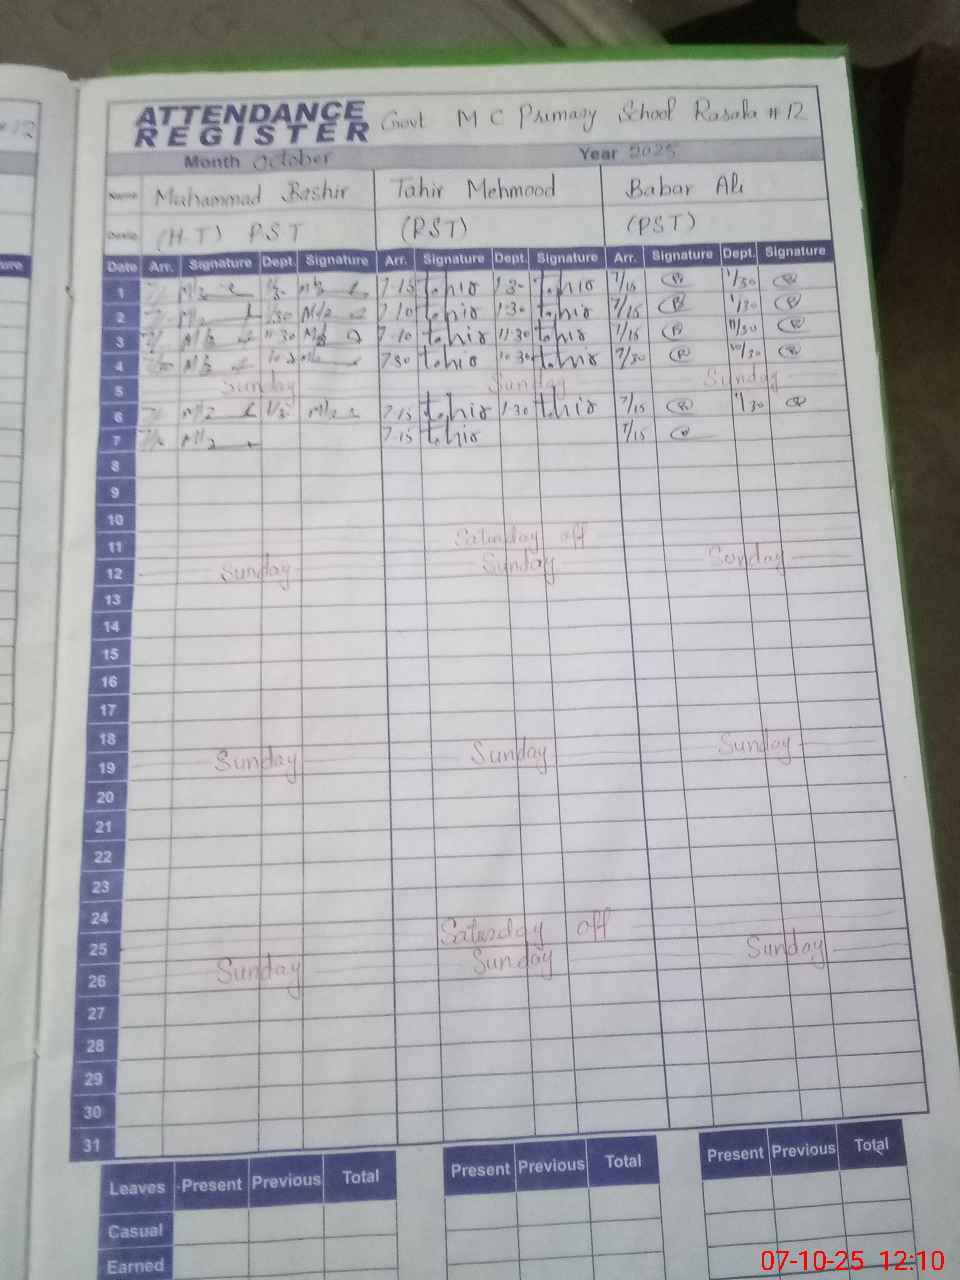 ATTENDANCE REGISTER Govt M C Primary School Rasala # 12
Month October Year 2025
Name Muhammad Bashir Tahir Mehmood Babar Ali
(H.T) P.S.T (PST) (PST)
Date Arr. Signature Dept. Signature Arr. Signature Dept. Signature Arr. Signature Dept. Signature
1 7-15 tahir 1-30 tahir 7/15 1/30
2 7-10 tahir 1-30 tahir 7/15 1/30
3 7-10 tahir 11-30 tahir 7/15 11/30
4 7-30 tahir 10-30 tahir 7/30 10/30
5 Sunday Sunday Sunday
6 7-15 tahir 1-30 tahir 7/15 1/30
7 7-15 tahir 7/15
8
9
10
11 Saturday off
12 Sunday Sunday Sunday
13
14
15
16
17
18
19 Sunday Sunday Sunday
20
21
22
23
24
25 Saturday off
26 Sunday Sunday Sunday
27
28
29
30
31
Leaves Present Previous Total Present Previous Total Present Previous Total
Casual
Earned
07-10-25 12:10